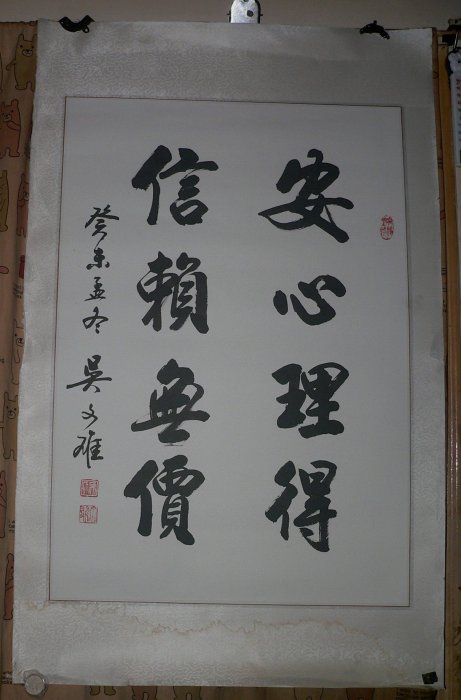 安心理得
信賴無價
癸未孟冬 吳文雄